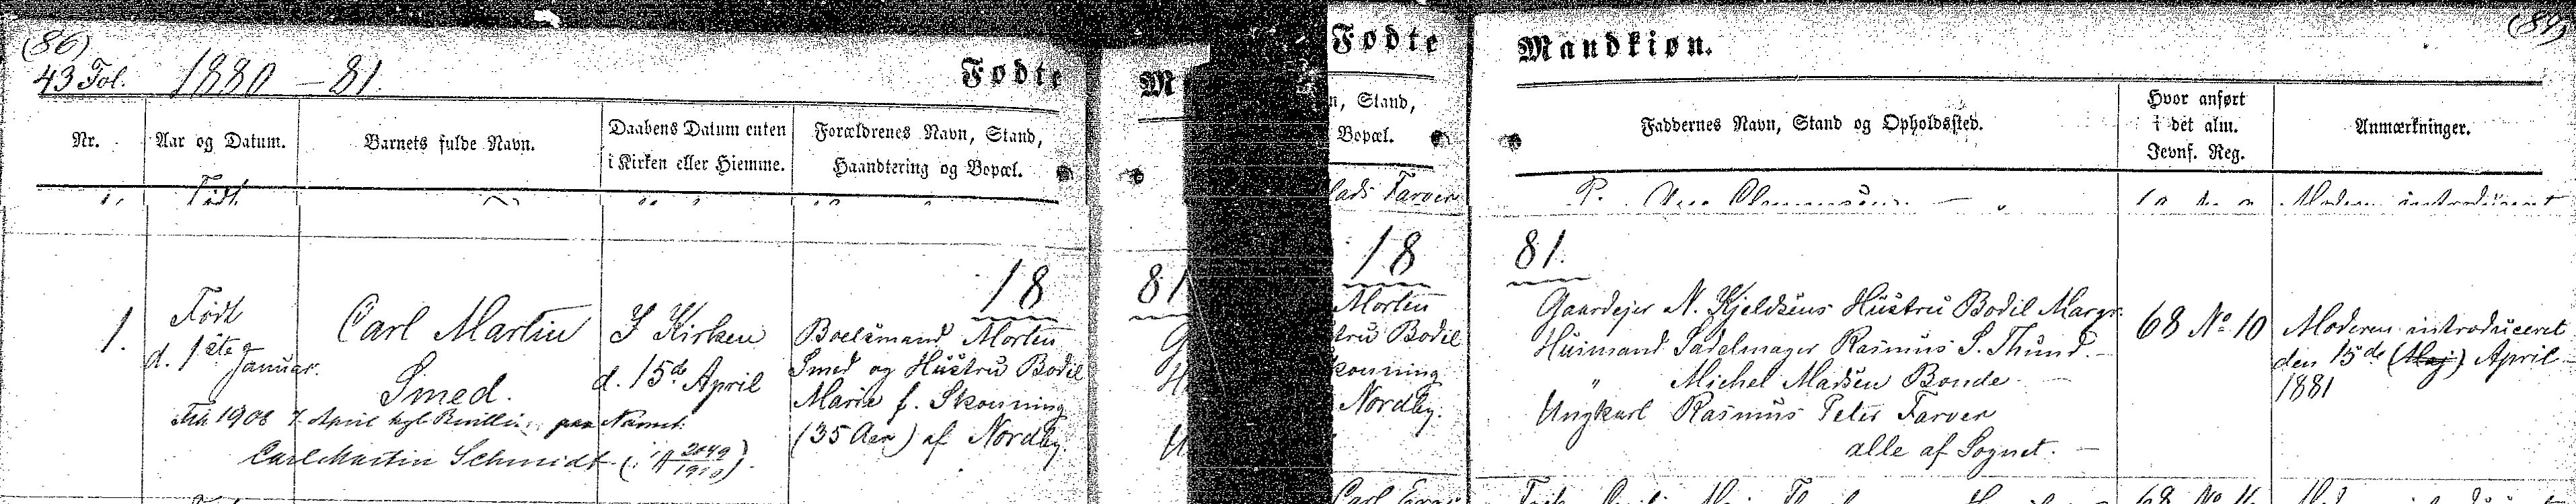 (86)
43 Fol. 1880 - 81. Fødte
Nr. Aar og Datum. Barnets fulde Navn. Daabens Datum enten i Kirken eller Hiemme. Forældrenes Navn, Stand, Haandtering og Bopæl.
Født
18
1. Født d. 1ste Januar.
Carl Martin
Smed.
I Kirken
d. 15de April
Boelsmand Morten
Smed og Hustru Bodil
Marie f. Skouning
(35 Aar) af Nordby.
1908 7. April kgl. Bevilling paa Navnet
Carl Martin Schmidt (2049/1910).
M
81
Fødte
n, Stand,
Bopæl.
lads Farver
18
Morten
tru Bodil
kouning
Nordby.
Carl
Mandkiøn.
Faddernes Navn, Stand og Opholdssted.
Hvor anført
i det alm.
Jevnf. Reg.
Anmærkninger.
81.
Gaardejer N. Kjeldsens Hustru Bodil Margr.
Huusmand Sadelmager Rasmus S. Thund.
" Michel Madsen Bonde
Ungkarl Rasmus Peter Farver
alle af Sognet.
68 No 10
Moderen introduceret
den 15de (Maj) April
1881
68 No 11